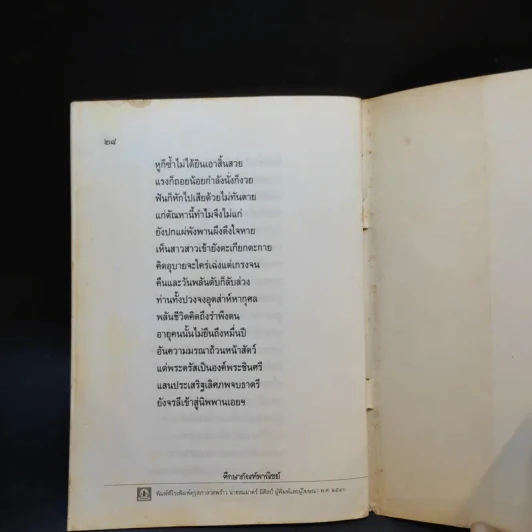 ๒๘
หูก็ซ้ำไม่ได้ยินเอาสิ้นสวย
แรงก็ถอยน้อยกำลังนั่งก็งวย
ฟันก็หักไปเสียด้วยไม่ทันตาย
แก่ตัณหานี้ทำไมจึงไม่แก่
ยังปกแผ่พังพานผึงดึงใจหาย
เห็นสาวสาวเข้ายังตะเกียกตะกาย
คิดอุบายจะใคร่เฉ่งแต่เกรงจน
คืนและวันพลันดับก็ลับล่วง
ท่านทั้งปวงจงอุตส่าห์หากุศล
พลันชีวิตคิดถึงรำพึงตน
อายุคนนั้นไม่ยืนถึงหมื่นปี
อันความมรณาถ้วนหน้าสัตว์
แต่พระตรัสเป็นองค์พระชินศรี
แสนประเสริฐเลิศภพจบธาตรี
ยังจรลีเข้าสู่นิพพานเอยฯ
ศึกษาภัณฑ์พาณิชย์
พิมพ์ที่โรงพิมพ์คุรุสภาลาดพร้าว นาย ผู้พิมพ์และผู้โฆษณา พ.ศ.